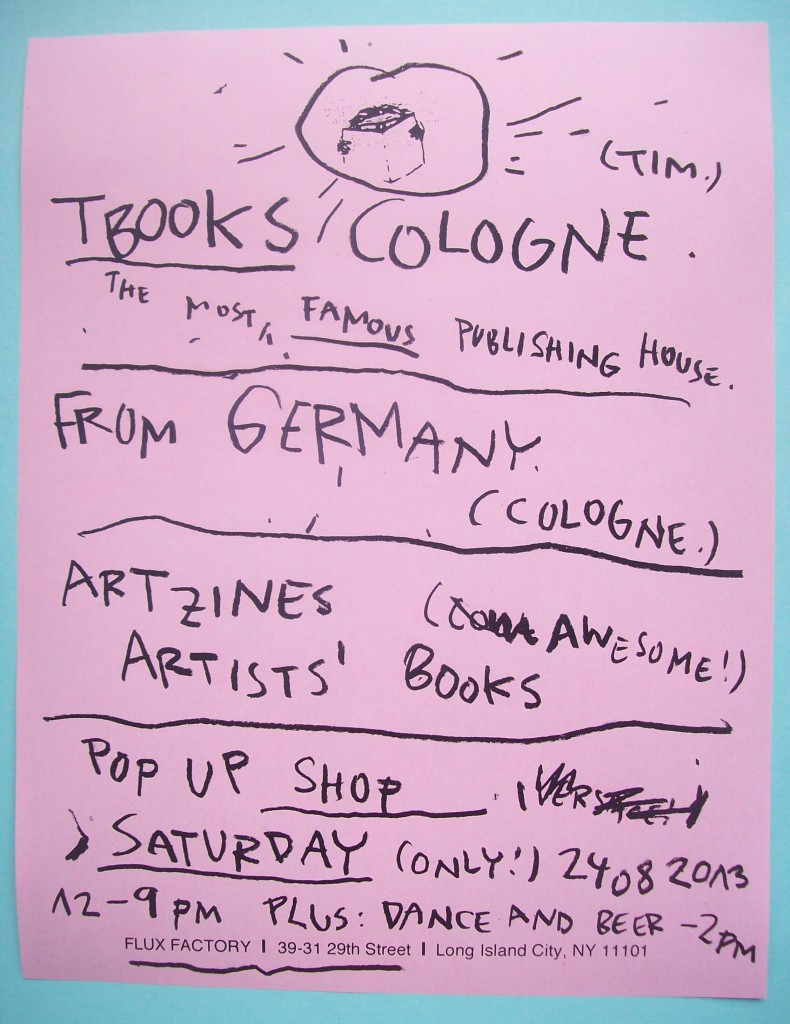 (TIM.)
TBOOKS COLOGNE.
THE MOST, FAMOUS PUBLISHING HOUSE.
FROM GERMANY.
(COLOGNE.)
ARTZINES (AWESOME!)
ARTISTS' BOOKS
POP UP SHOP
SATURDAY (ONLY!) 24 08 2013
12-9 PM PLUS: DANCE AND BEER -2PM
FLUX FACTORY I 39-31 29th Street I Long Island City, NY 11101